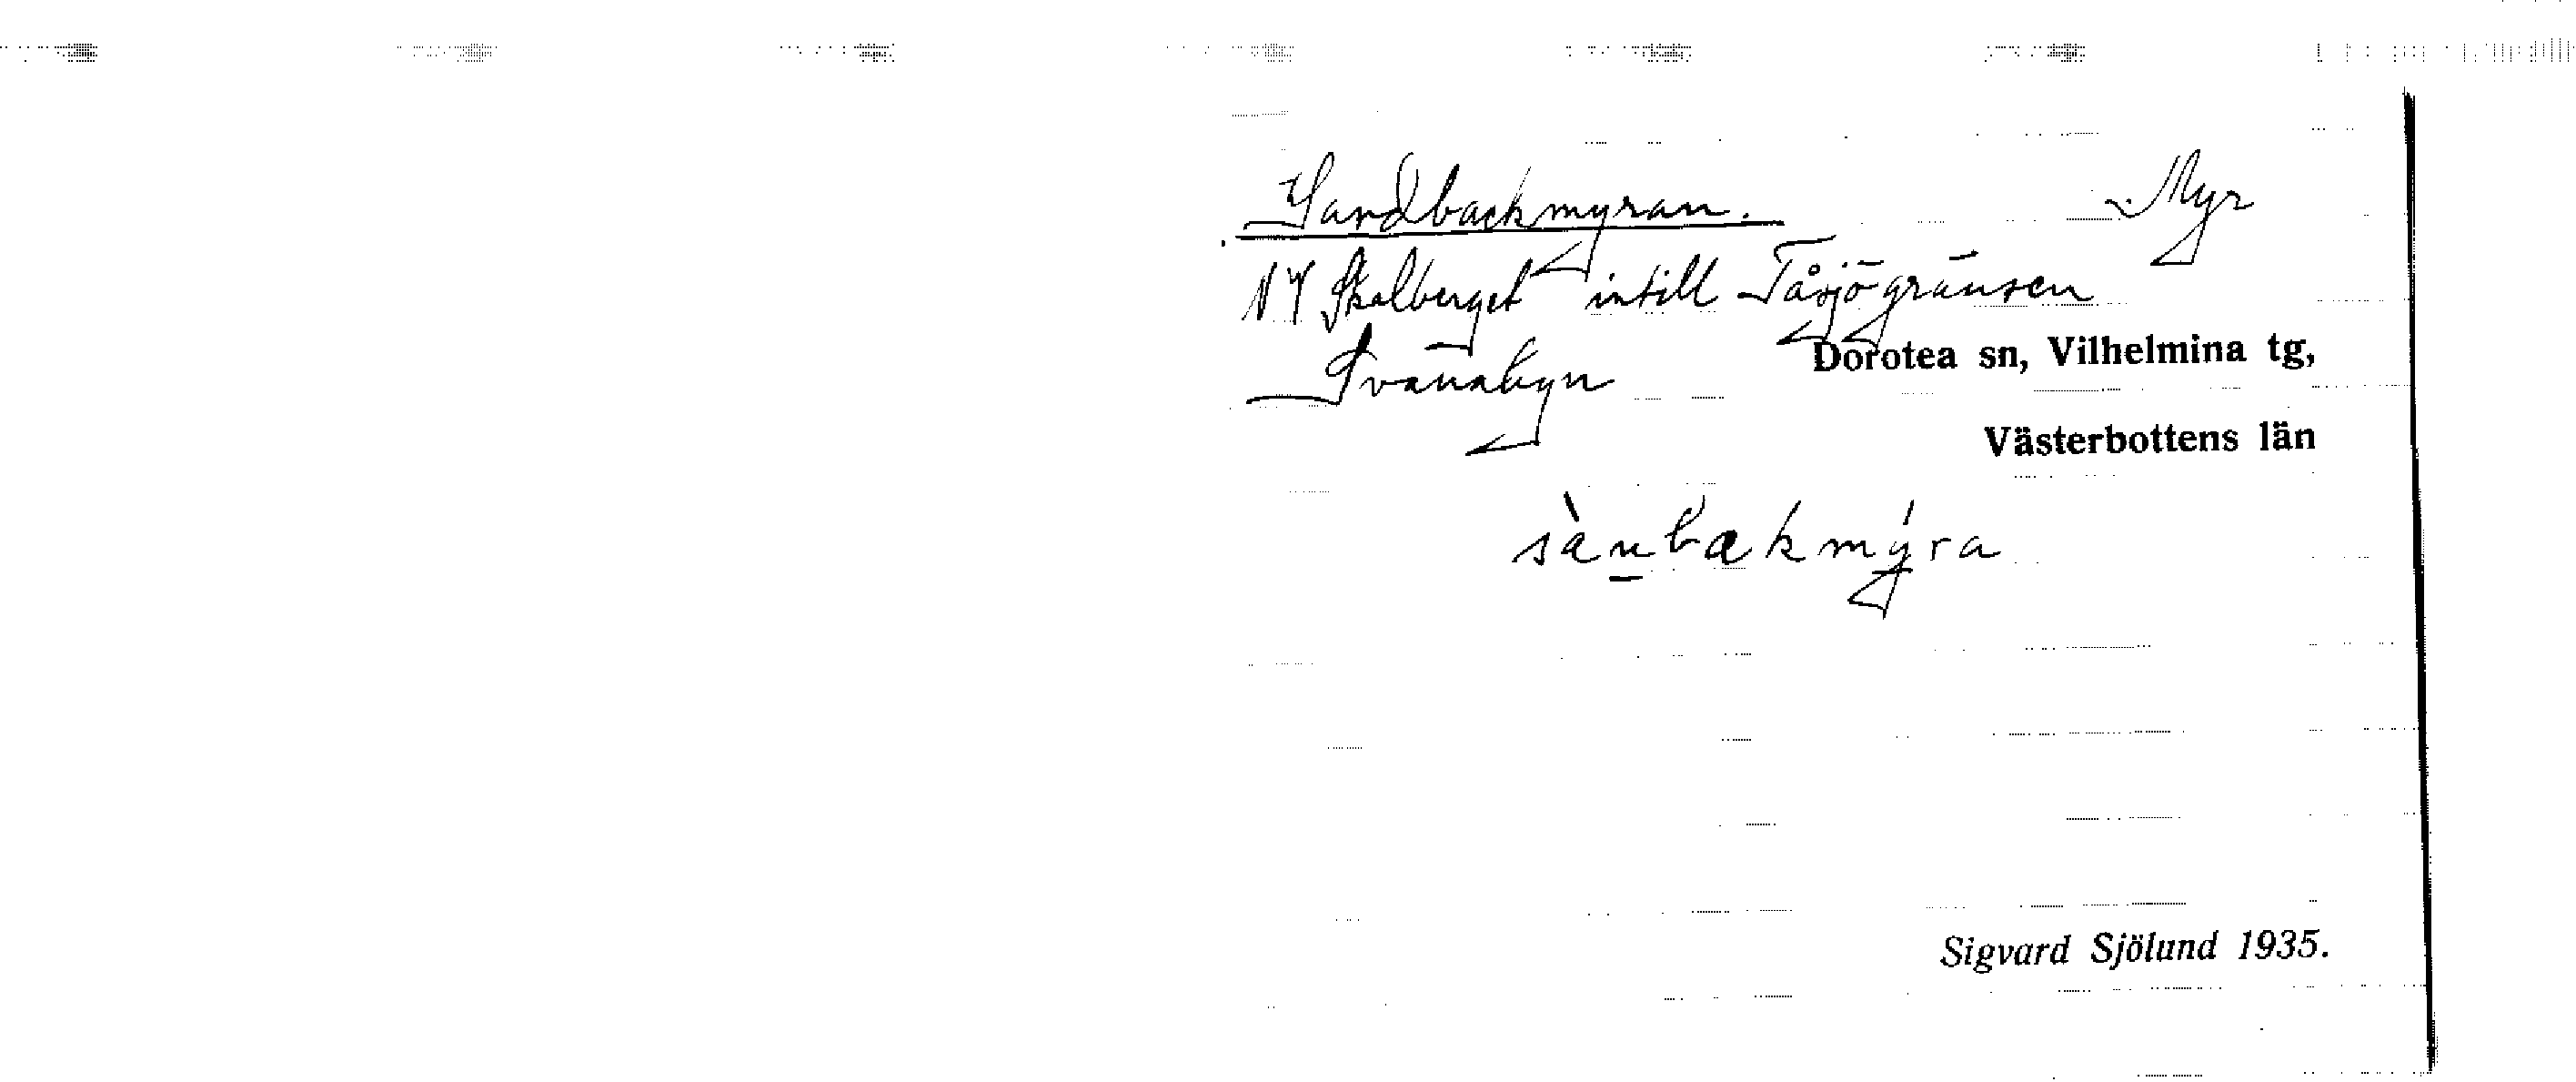 Sandbackmyran. Myr
NV Skalberget intill Tåsjögränsen
Svanabyn Dorotea sn, Vilhelmina tg,
Västerbottens län
sànbakmýra
Sigvard Sjölund 1935.